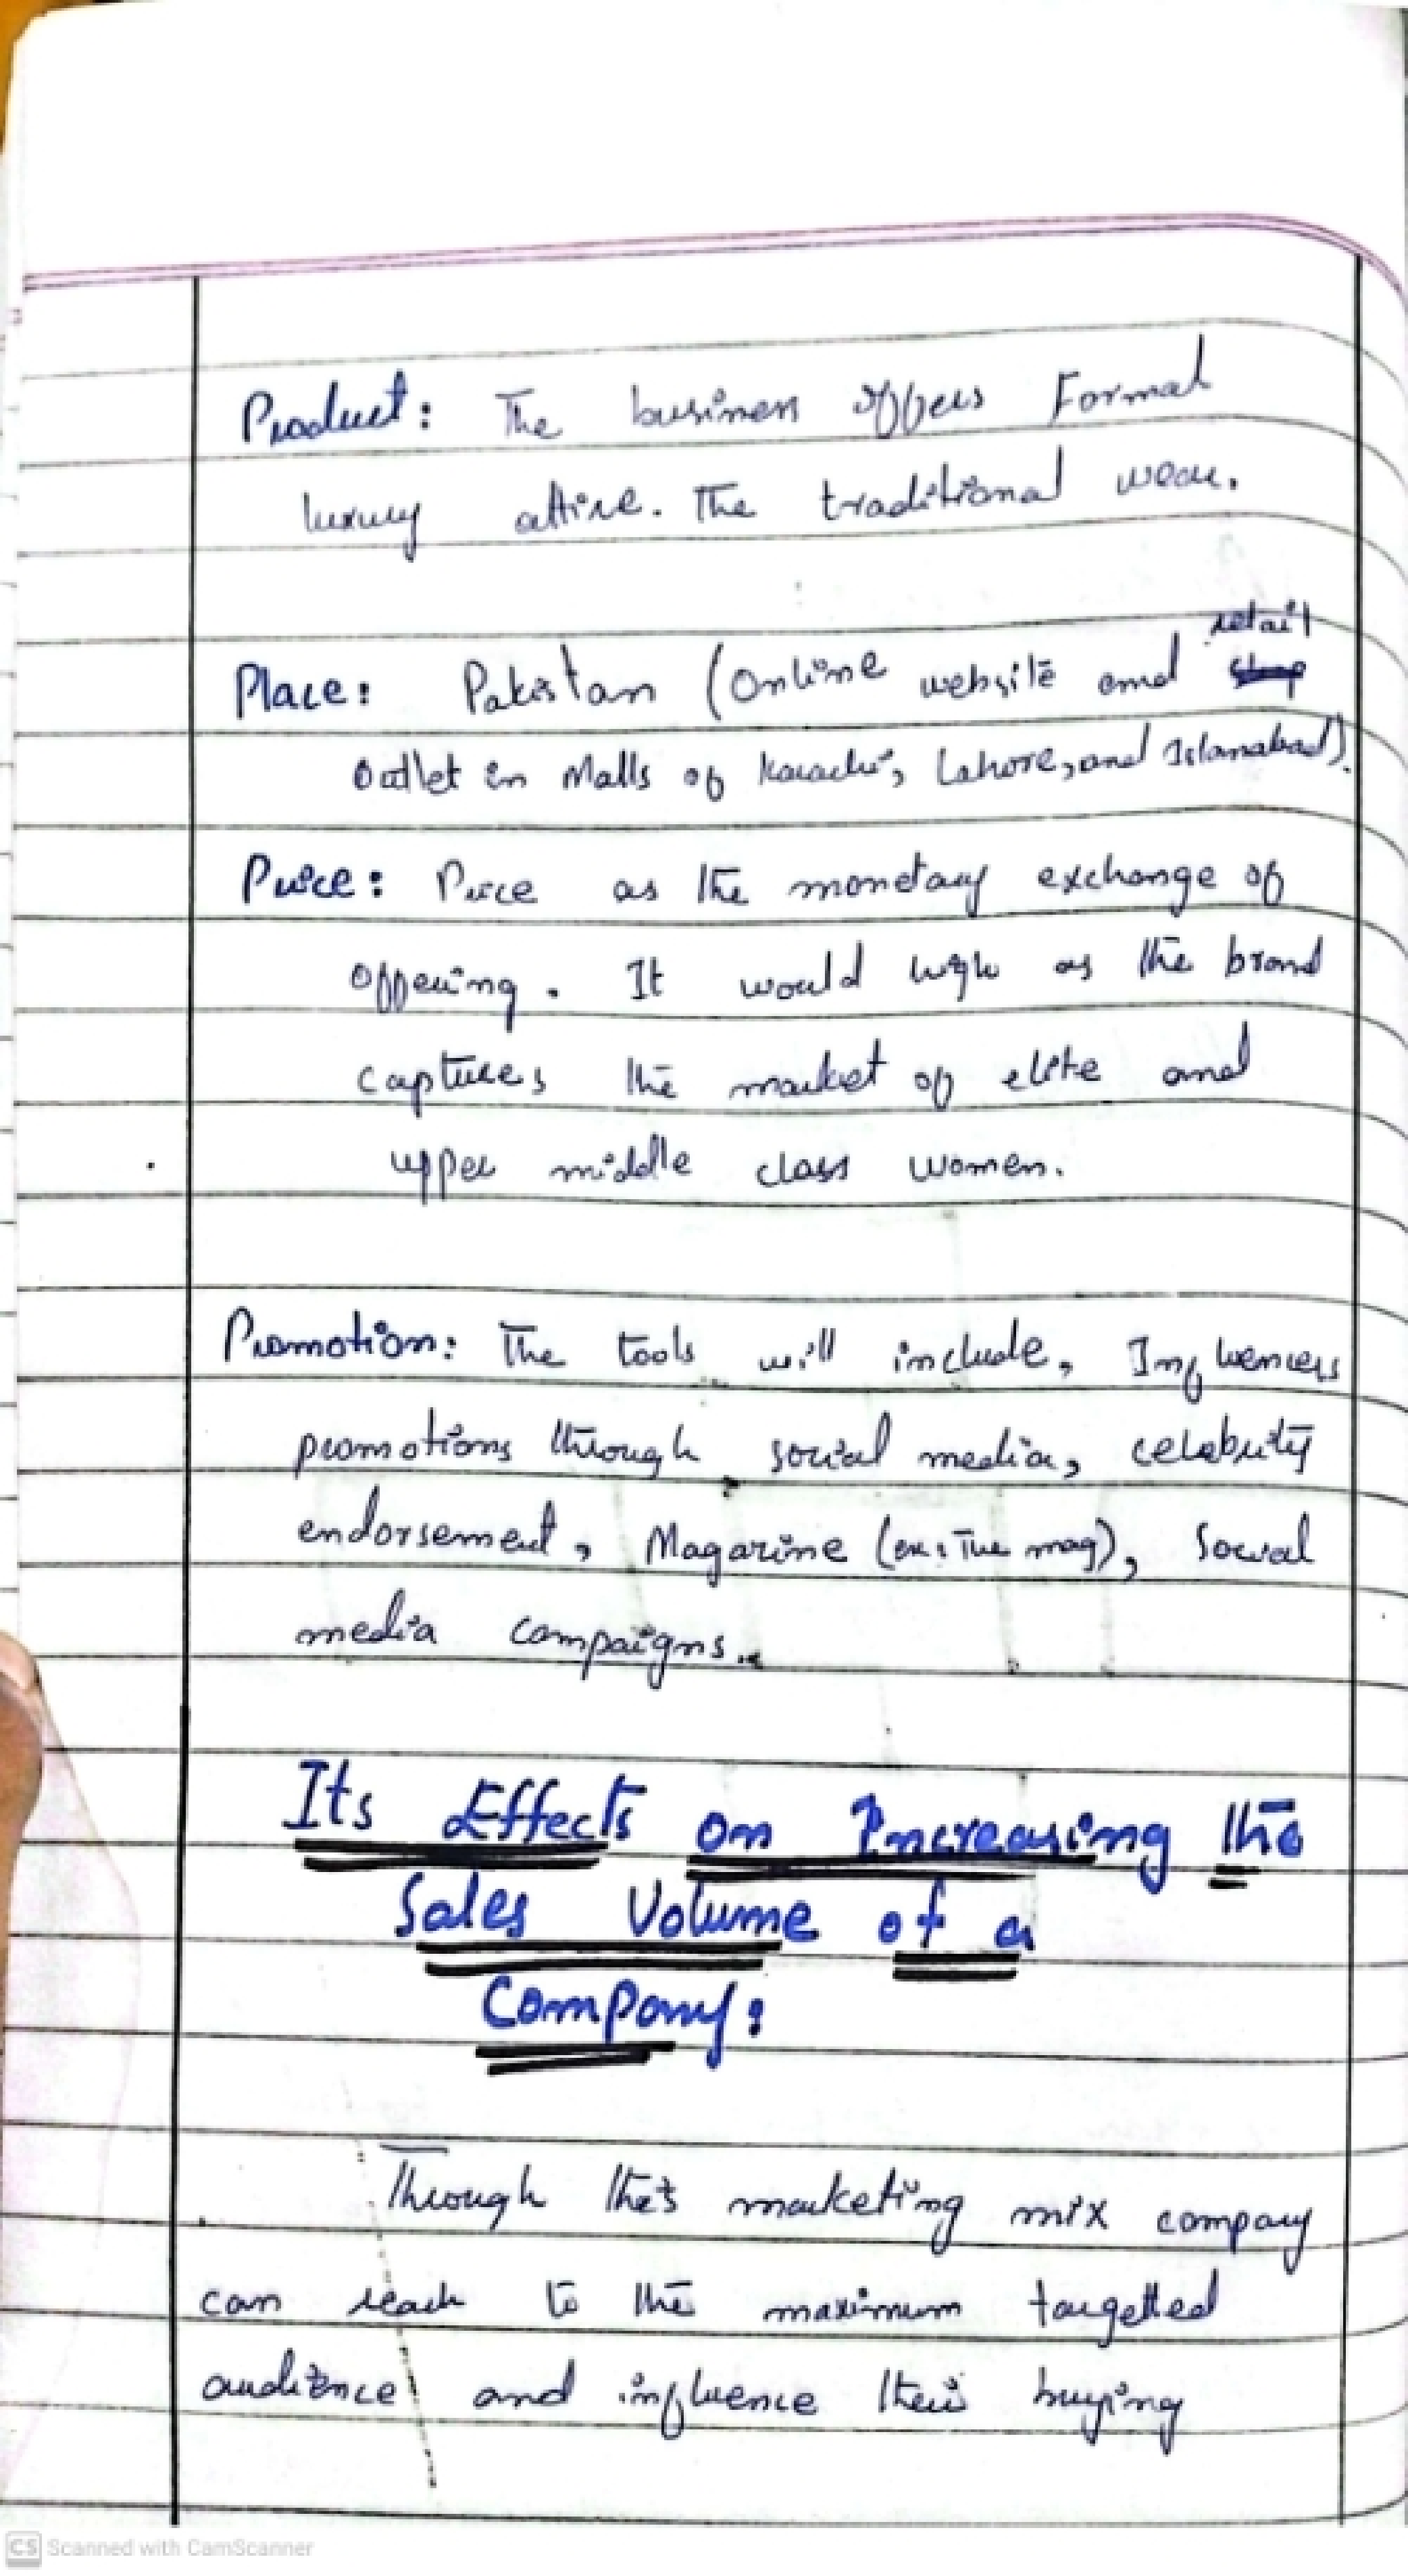 Product: The business offers Formal
luxury attire. The traditional wear.
Place: Pakistan (Online website and retail
Outlet in Malls of Karachi, Lahore, and Islamabad).
Price: Price as the monetary exchange of
offering. It would high as the brand
captures the market of elite and
upper middle class women.
Promotion: The tools will include, Influencers
promotions through social media, celebrity
endorsement, Magazine (ex: The mag), Social
media campaigns.
Its Effects on Increasing the
Sales Volume of a
Company:
Through this marketing mix company
can reach to the maximum targetted
audience and influence their buying
CS Scanned with CamScanner